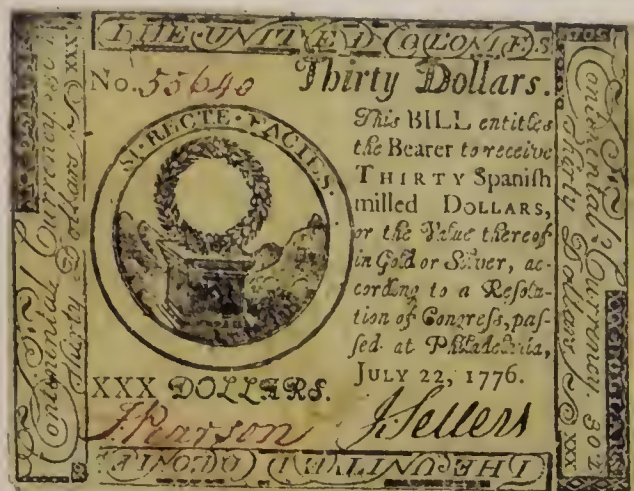 THE UNITED COLONIES
No. 55640 Thirty Dollars.
SI·RECTE·FACIES·
This BILL entitles
the Bearer to receive
THIRTY Spaniſh
milled DOLLARS,
or the Value thereof
in Gold or Silver, ac-
cording to a Reſolu-
tion of Congreſs, paſ-
ſed at Philadelphia,
JULY 22, 1776.
XXX DOLLARS.
J. Pearson J. Sellers
THE UNITED COLONIE
Continental Currency
Thirty Dollars XXX
Continental Currency
Thirty Dollars XXX